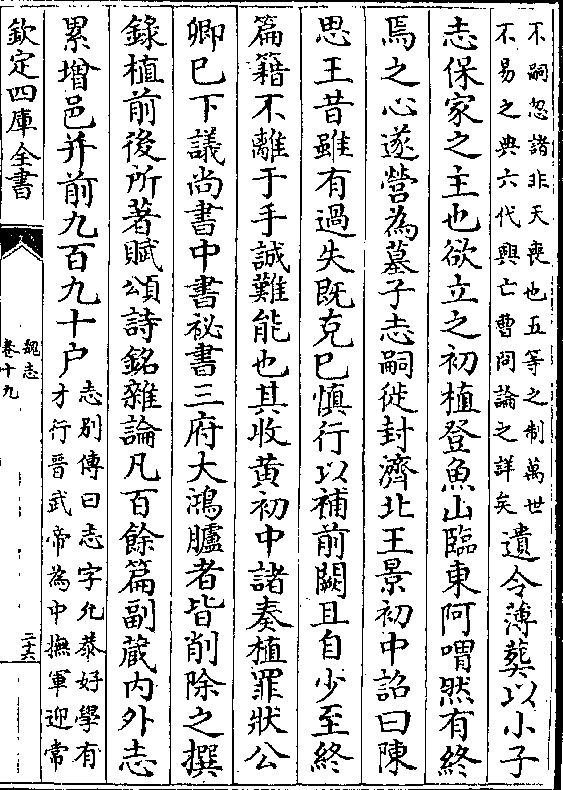 不嗣忽諸非天喪也五等之制萬世
不易之典六代興亡曹冏論之詳矣
遺令薄葬以小子
志保家之主也欲立之初植登魚山臨東阿喟然有終
焉之心遂營為墓子志嗣徙封濟北王景初中詔曰陳
思王昔雖有過失既克己慎行以補前闕且自少至終
篇籍不離于手誠難能也其收黄初中諸奏植罪狀公
卿已下議尚書中書祕書三府大鴻臚者皆削除之撰
錄植前後所著賦頌詩銘雜論凡百餘篇副藏内外志
累增邑并前九百九十户
志别傳曰志字允恭好學有
才行晉武帝為中撫軍迎常
欽定四庫全書
魏志
卷十九
二十六